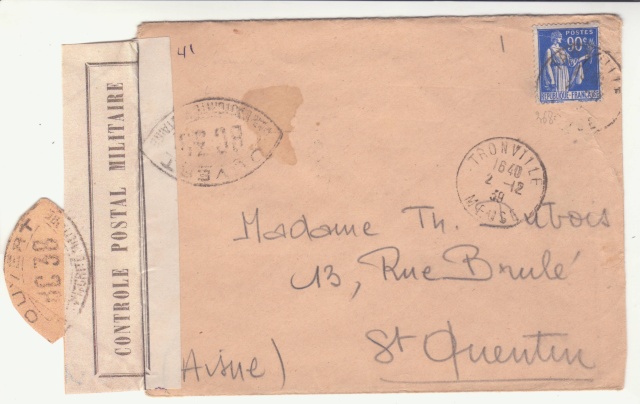 41
1
POSTES
90c
REPUBLIQUE FRANÇAISE
TRONVILLE
1640
2 -12
39
MEUSE
CONTROLE POSTAL MILITAIRE
OUVERT
OUVERT
Madame Th. Dubois
13, Rue Brulé
St Quentin
(Aisne)